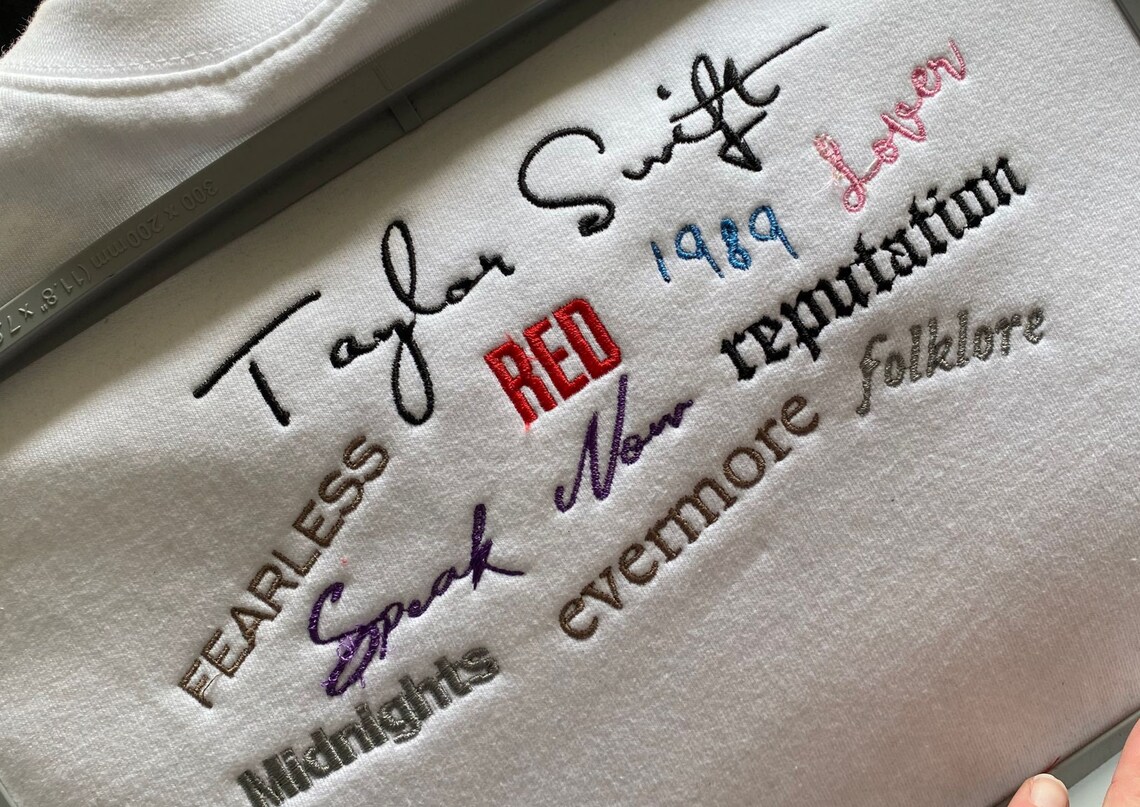 Taylor Swift
Lover
1989
RED
reputation
folklore
FEARLESS
Speak Now
evermore
Midnights
300 x 200 mm (11.8" x 7.